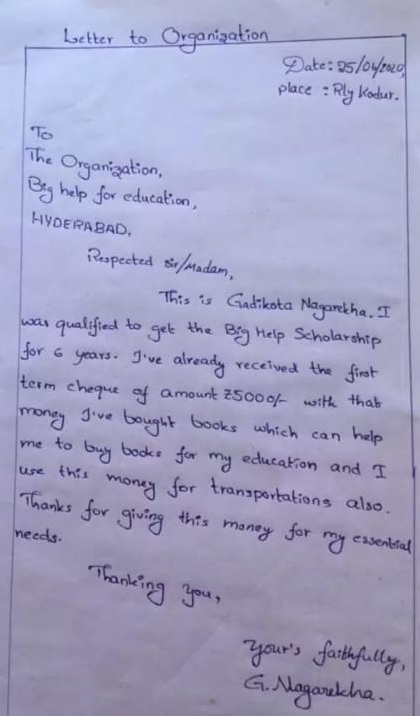 Letter to Organization
Date: 25/04/2020,
place : Rly Kodur.
To
The Organization,
Big help for education,
HYDERABAD,
Respected Sir/Madam,
This is Gadikota Nagarekha. I
was qualified to get the Big Help Scholarship
for 6 years. I've already received the first
term cheque of amount ₹5000/- with that
money I've bought books which can help
me to buy books for my education and I
use this money for transportations also.
Thanks for giving this money for my essential
needs.
Thanking you,
Your's faithfully,
G. Nagarekha.